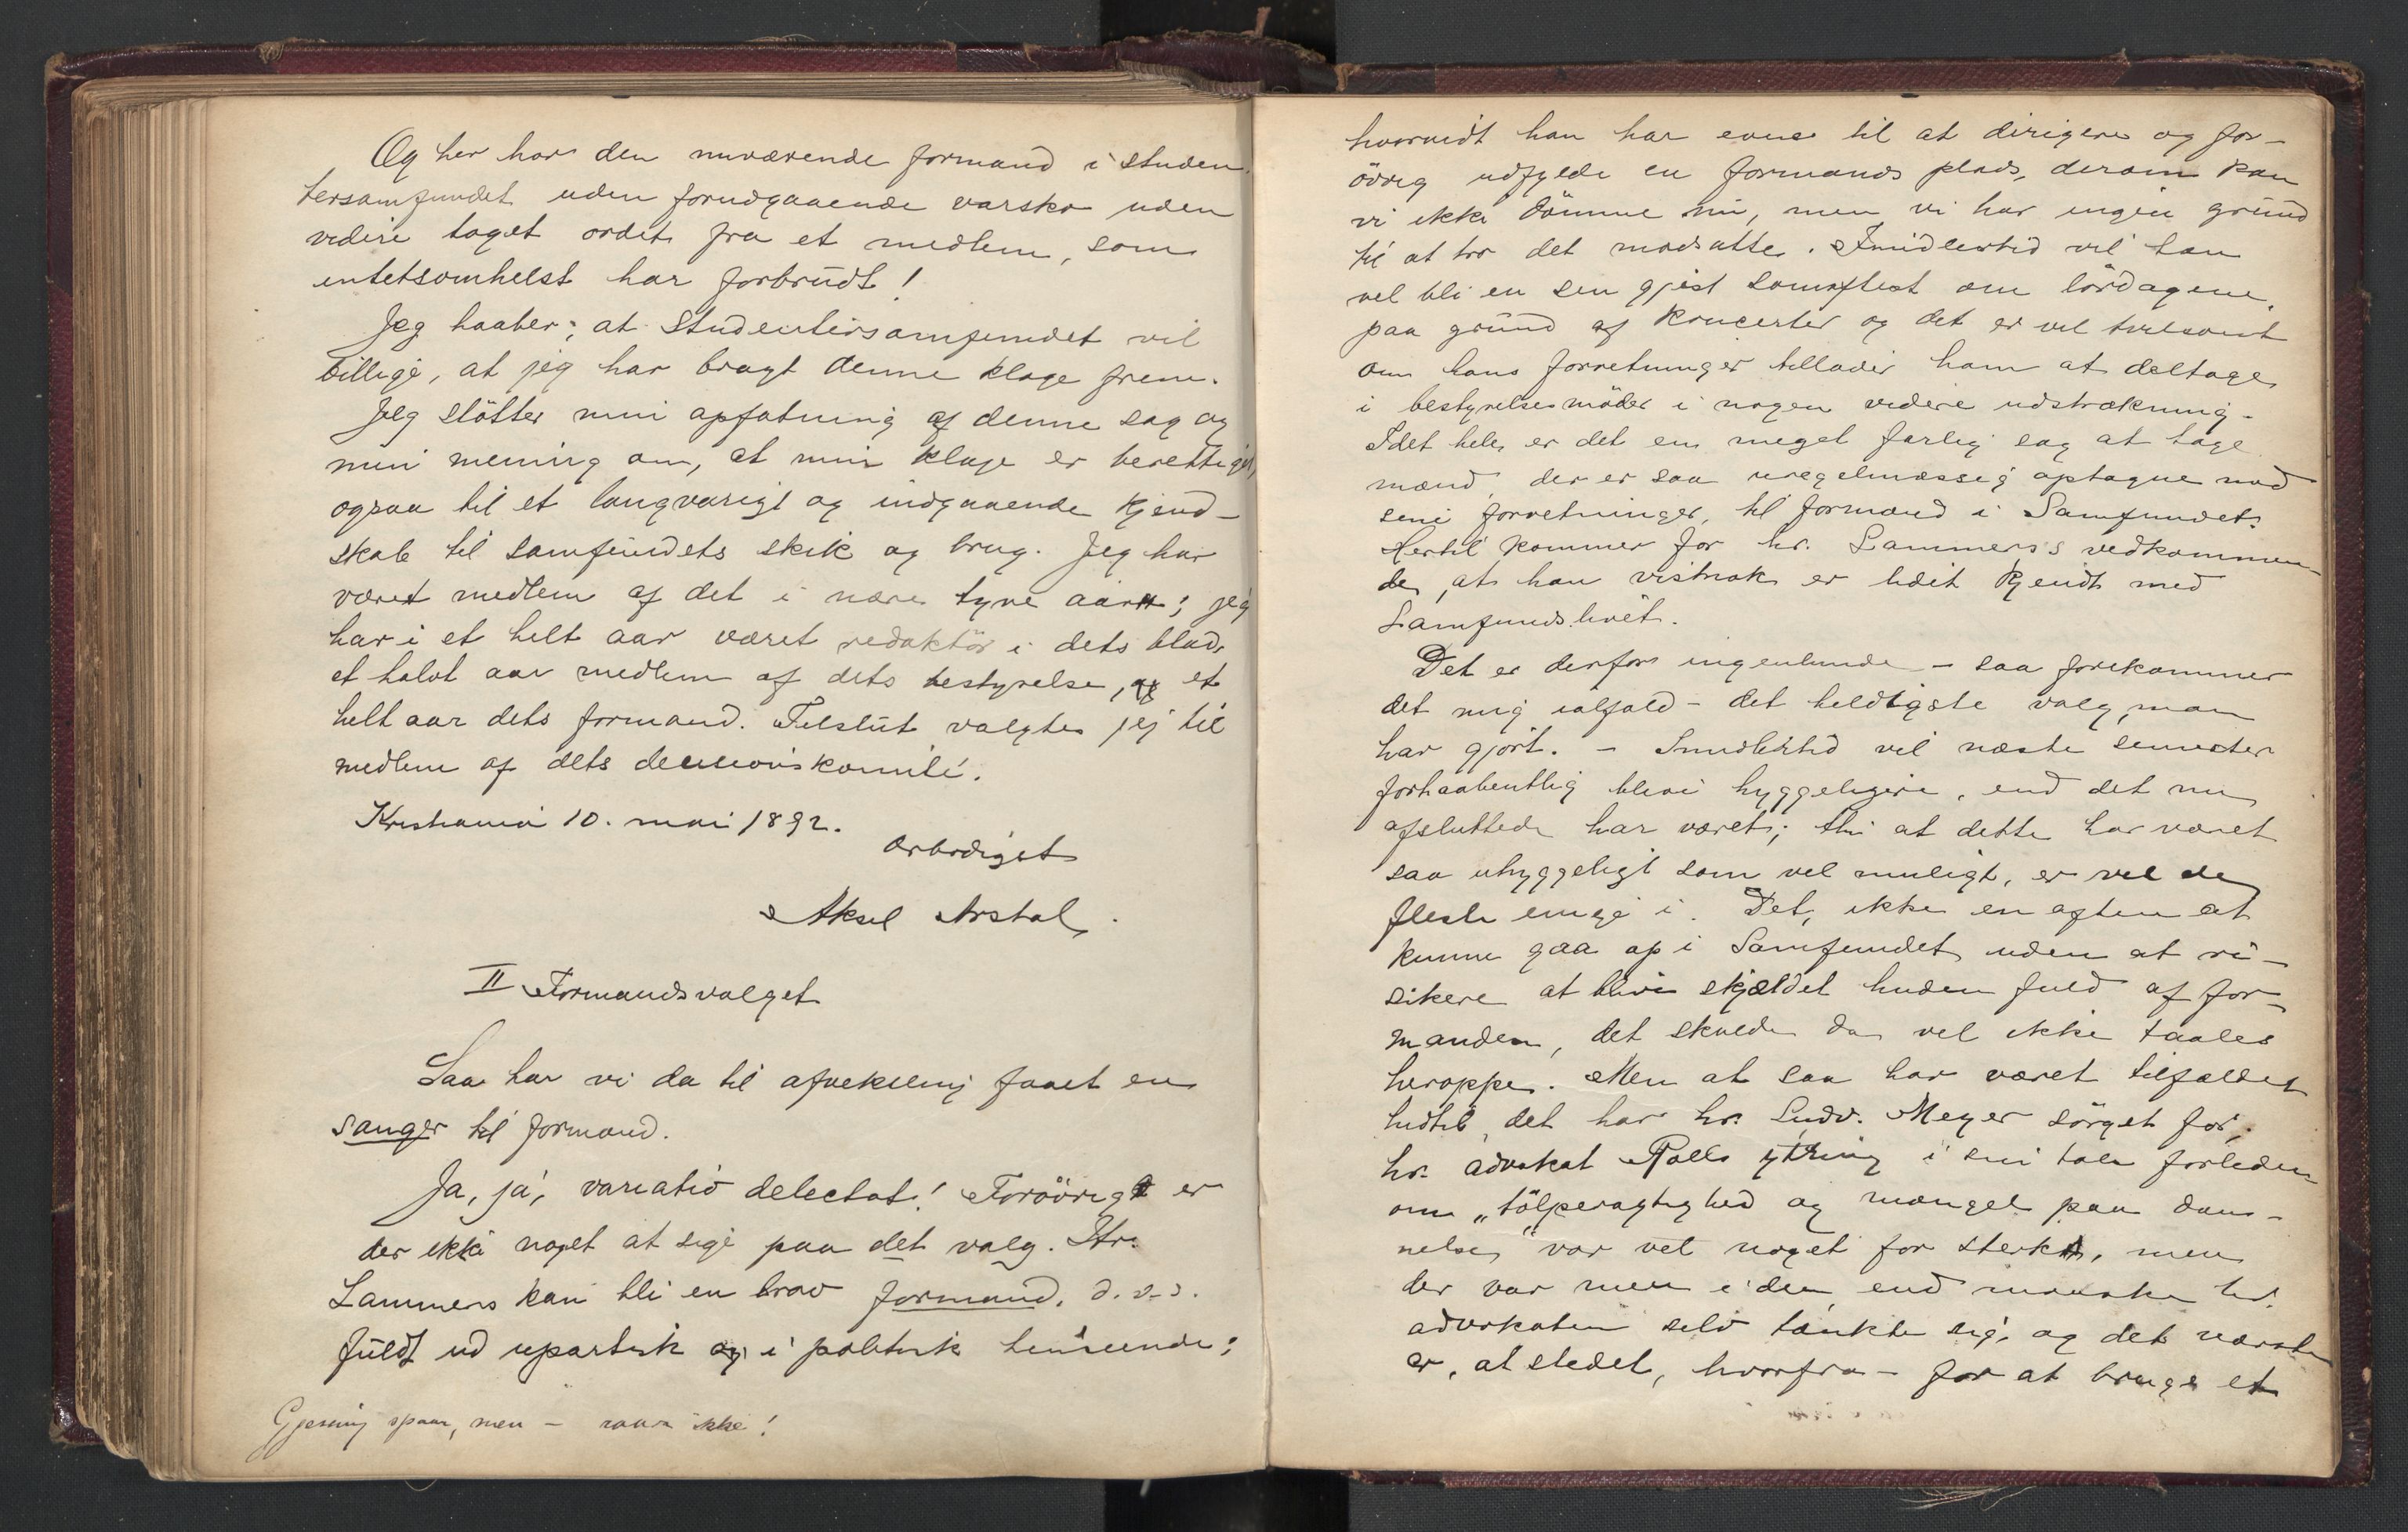 Og her har den nuværende formand i studen-
tersamfundet uden forudgaaende varsko uden
videre taget ordet fra et medlem, som
intetsomhelst har forbrudt!
Jeg haaber, at Studentersamfundet vil
billige, at jeg har bragt denne klage frem.
Jeg stötter min opfatning af denne sag og
min mening om, at min klage er berettiget,
ogsaa til et langvarigt og indgaaende kjend-
skab til samfundets skik og brug. Jeg har
været medlem af det i nære tyve aar; jeg
har i et helt aar været redaktör i dets blad,
et halvt aar medlem af dets bestyrelse, og et
helt aar dets formand. Tilslut valgtes jeg til
medlem af dets decisionskomité.
Kristiania 10. mai 1892.
Ærbødigst
Aksel Arstal.
II Formandsvalget
Saa har vi da til afveksling faaet en
sanger til formand.
Ja, ja, variatio delectat! Forövrigt er
der ikke noget at sige paa det valg. Hr.
Lammers kan bli en brav formand, d.v.s.
fuldt ud upartisk og i politisk henseende;
Gjesning spaar, men – raar ikke!
hvorvidt han har evne til at dirigere og for-
övrig udfylde en formands plads, derom kan
vi ikke dömme nu, men vi har ingen grund
til at tro det modsatte. Imidlertid vil han
vel bli en sen gjest somoftest om lördagene,
paa grund af koncerter og det er vel tvilsomt
om hans forretninger tillader ham at deltage
i bestyrelsesmöder i nogen videre udstrækning.
I det hele er det en meget farlig sag at tage
mænd, der er saa uregelmæssig optagne med
sine forretninger, til formand i Samfundet.
Hertil kommer for hr. Lammers's vedkommen-
de, at han vistnok er lidet kjendt med
Samfundslivet.
Det er derfor ingenlunde – saa forekommer
det mig ialfald – det heldigste valg, man
har gjort. – Imidlertid vil næste semester
forhaabentlig blive hyggeligere, end det nu
afsluttede har været; thi at dette har været
saa uhyggeligt som vel muligt, er vel de
fleste enige i. Det, ikke en aften at
kunne gaa op i Samfundet uden at ri-
sikere at blive skjældet huden fuld af for-
manden, det skulde da vel ikke taales
heroppe. Men at saa har været tilfældet
hidtil, det har hr. Ludv. Meyer sörget for;
hr. advokat Rolls ytring i sin tale forleden
om „tölperagtighed og mangel paa dan-
nelse" var vel noget for sterk, men
der var mere i den end maaske hr.
advokaten selv tænkte sig, og det værste
er, at stedet, hvorfra – for at bruge et